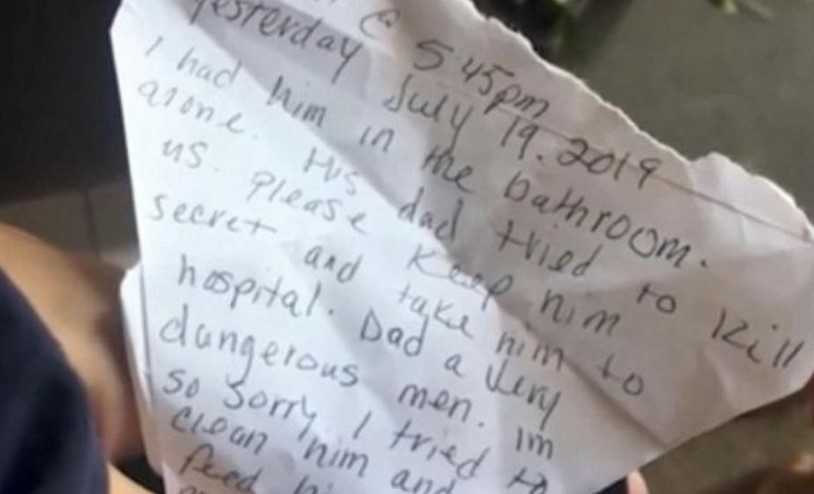 @ 545pm
Yesterday July 19. 2019
I had him in the bathroom.
alone. His dad tried to kill
us. Please keep him
secret and take him to
hospital. Dad a very
dangerous men. Im
so sorry I tried to
clean him and
feed